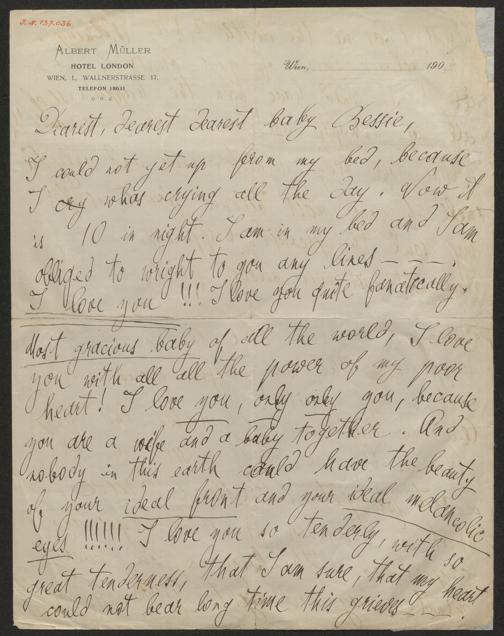 J.N. 137.036
ALBERT MÜLLER
HOTEL LONDON
WIEN, I., WALLNERSTRASSE 17.
TELEFON 18631
Wien, 190
Dearest, dearest dearest baby Bessie,
I could not get up from my bed, because
I cry whas crying all the day. Now it
is 10 in night. I am in my bed and I am
obliged to wright to you any lines — — — .
I love you !!! I love you quite fanatically.
Most gracious baby of all the world, I love
you with all all the power of my poor
heart! I love you, only only you, because
you are a wife and a baby together. And
nobody in this earth could have the beauty
of your ideal front and your ideal melancolic
eyes !!!!!! I love you so tenderly, with so
great tenderness, that I am sure, that my heart
could not bear long time this grieves — — .